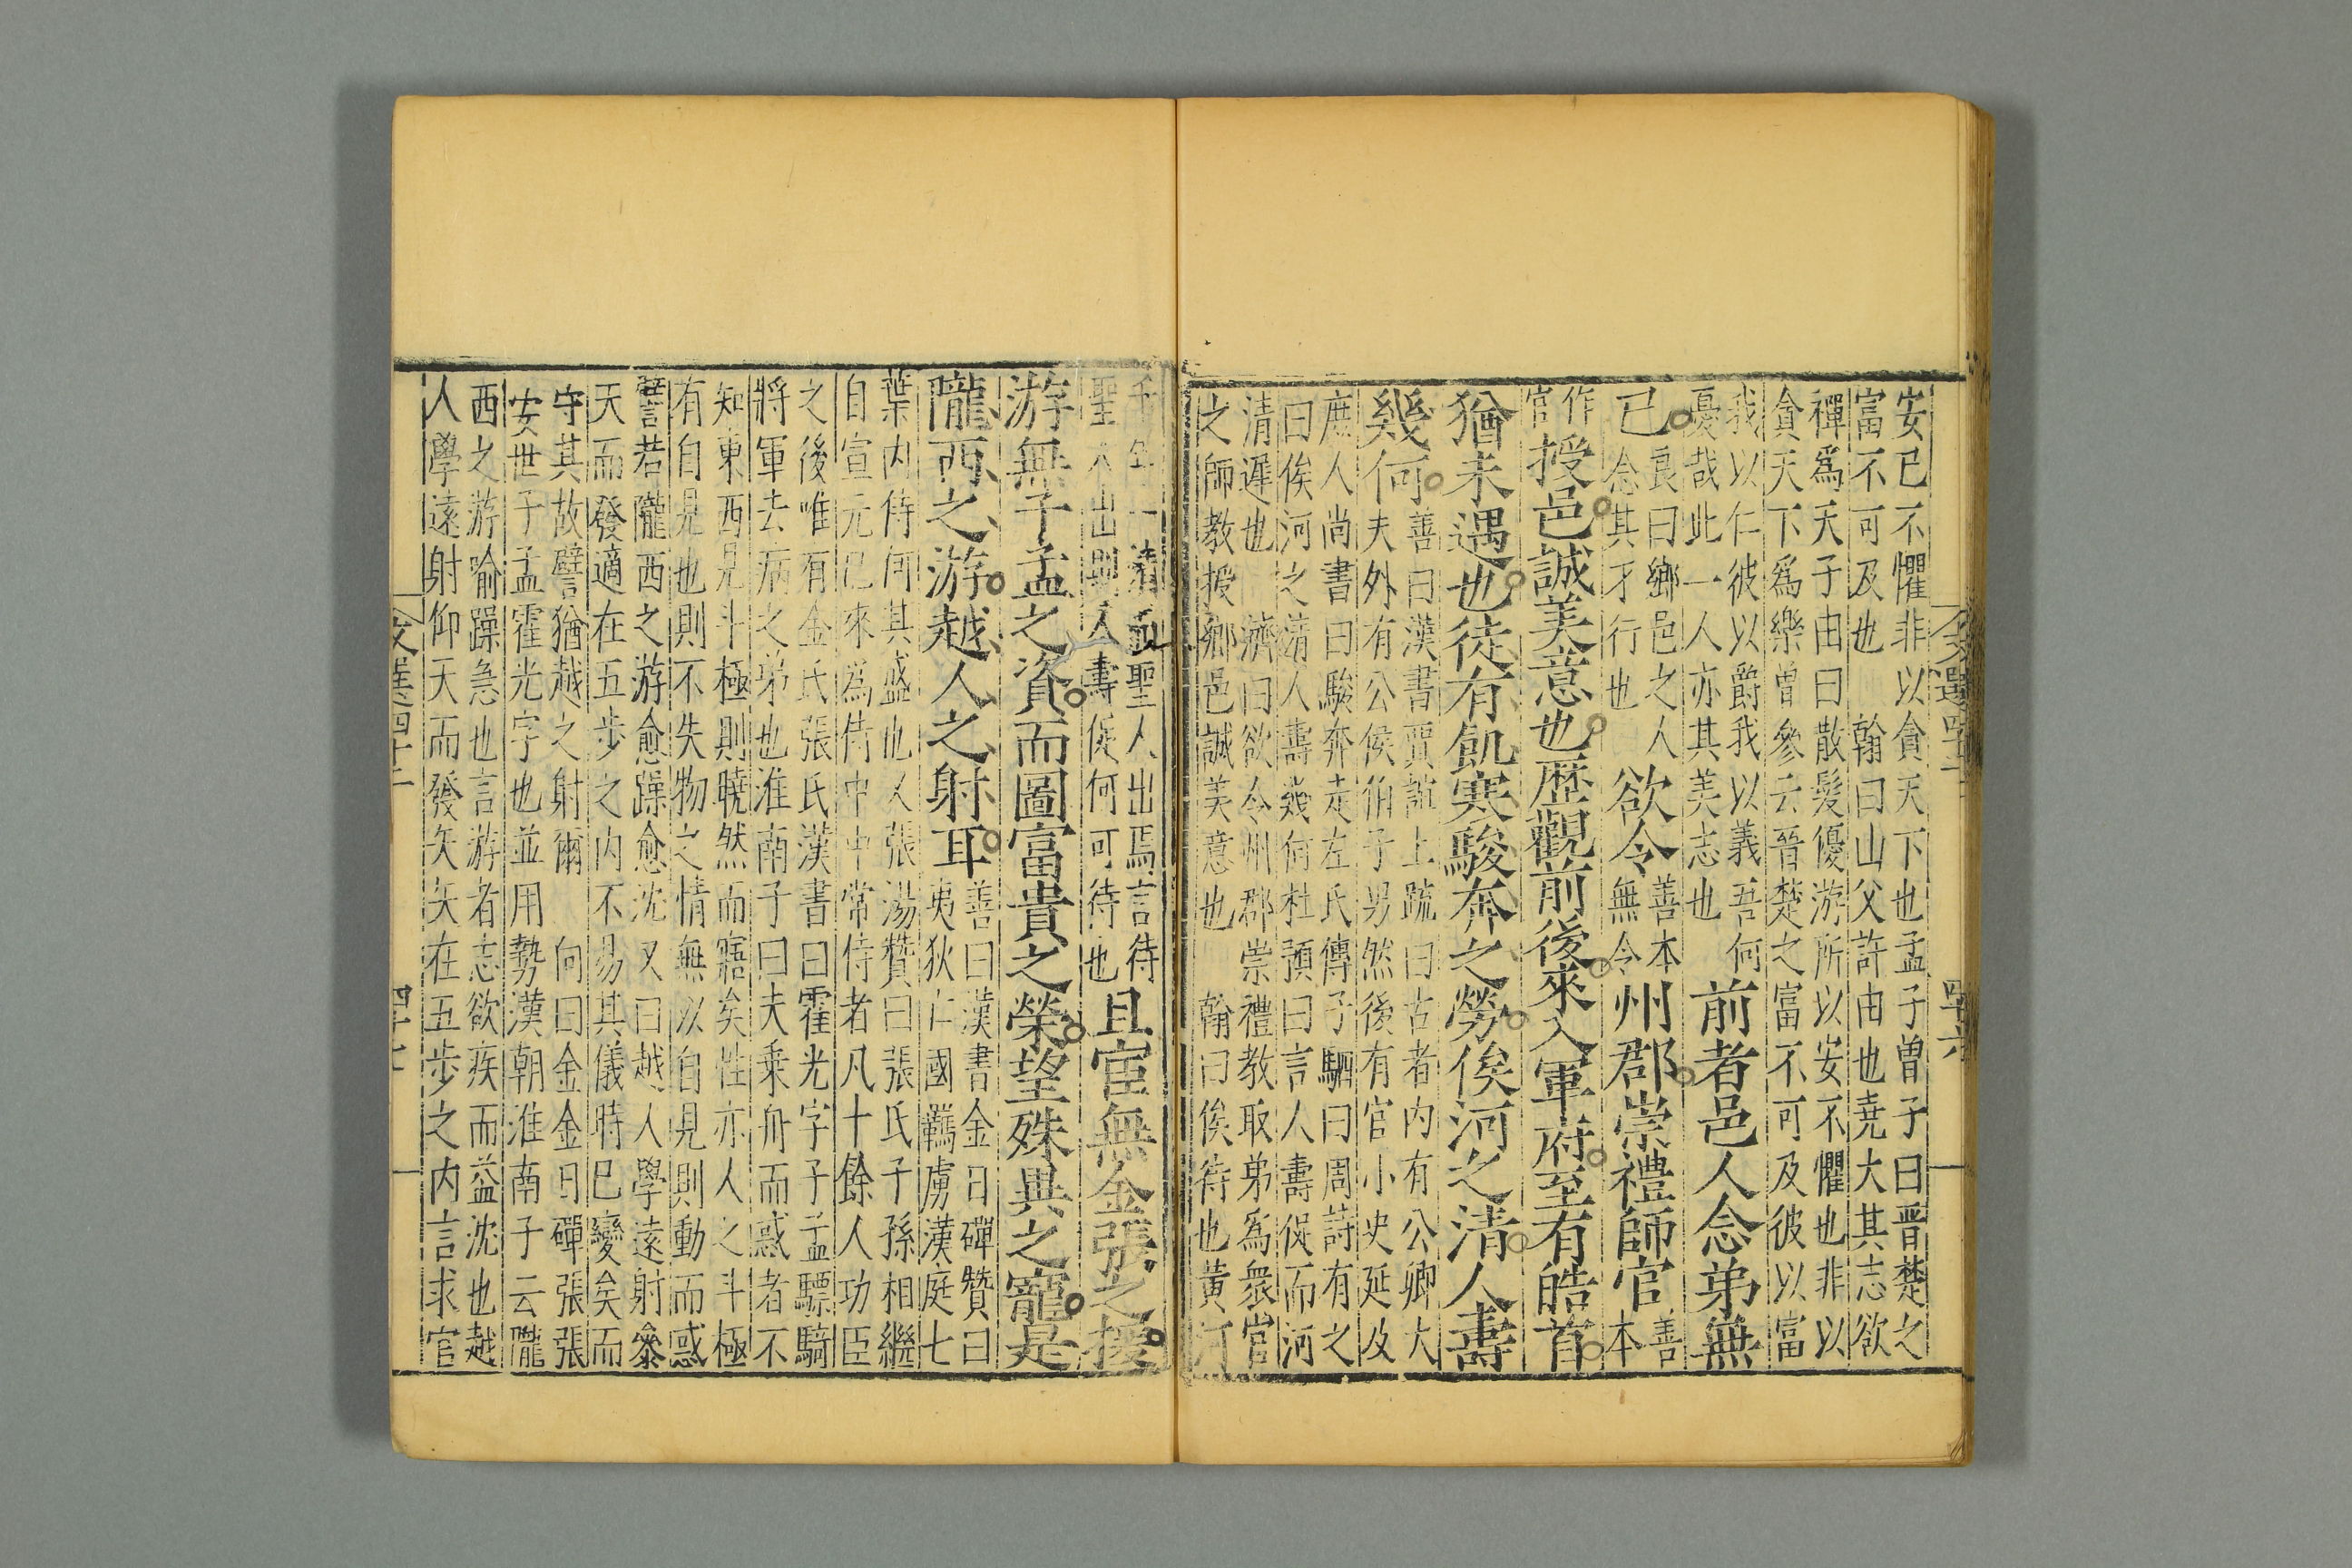 文選四十二 四十六
安已不懼非以貪天下也孟子曾子曰晋楚之
富不可及也 翰曰山父許由也堯大其志欲
禪爲天子由曰散髮優游所以安不懼也非以
貪天下爲樂曾參云晉楚之富不可及彼以富
我以仁彼以爵我以義吾何
憂哉此一人亦其美志也
前者邑人念弟無
已 良曰鄉邑之人
念其才行也
欲令 善本
無令 州郡崇禮師官 善
本
作
官 授邑誠美意也歷觀前後來入軍府至有皓首
猶未遇也徒有飢寒駿奔之勞俟河之清人壽
幾何 善曰漢書賈誼上疏曰古者内有公卿大
夫外有公侯伯子男然後有官小史延及
庶人尚書曰駿奔走左氏傳子駟曰周詩有之
曰俟河之清人壽幾何杜預曰言人壽促而河
清遲也 濟曰欲令州郡崇禮教取弟爲衆官
之師教授鄉邑誠美意也 翰曰俟待也黃河
千年一清 聖人出焉言待
聖人出則人壽促何可待也
且宦無金張之援
游無子孟之資而圖富貴之榮望殊異之寵是
隴西之游越人之射耳 善曰漢書金日磾贊曰
夷狄亡國羈虜漢庭七
葉内侍何其盛也又張湯贊曰張氏子孫相繼
自宣元已來為侍中中常侍者凡十餘人功臣
之後唯有金氏張氏漢書曰霍光字子孟驃騎
將軍去病之弟也淮南子曰夫乗舟而惑者不
知東西見斗極則曉然而寤矣性亦人之斗極
有自見也則不失物之情無以自見則動而惑
譬若隴西之游愈躁愈沈又曰越人學遠射參
天而發適在五步之内不易其儀時已變矣而
守其故譬猶越之射爾 向曰金金日磾張張
安世子孟霍光字也並用勢漢朝淮南子云隴
西之游喻躁急也言游者志欲疾而益沈也越
人學遠射仰天而發矢矢在五步之内言求官
文選四十二 四十七